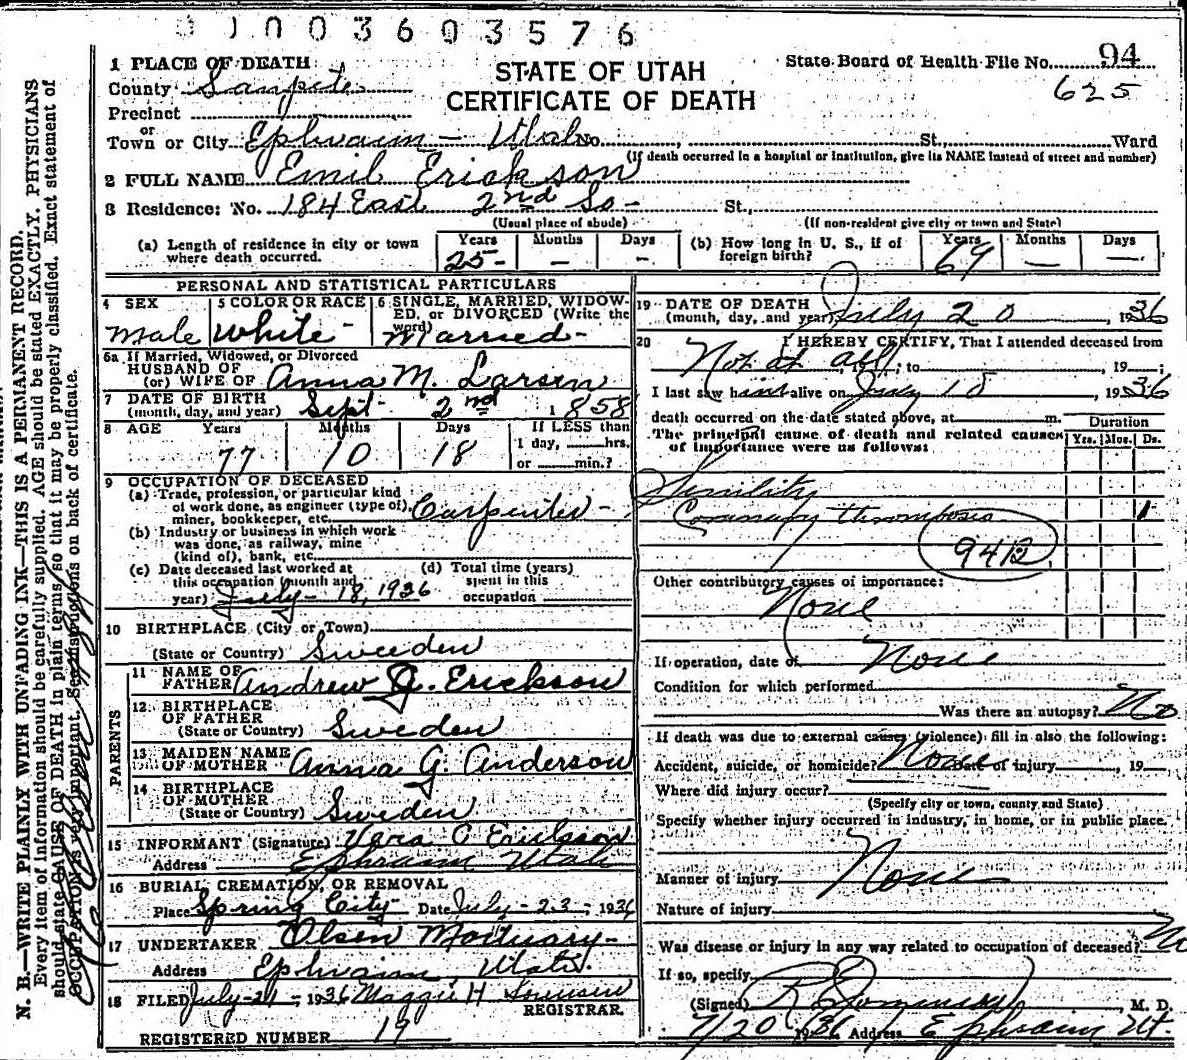 0 1 0 0 3 6 0 3 5 7 6
1 PLACE OF DEATH
County Sanpete
Precinct
or
Town or City Ephraim - Utah No. St., Ward
(If death occurred in a hospital or institution, give its NAME instead of street and number)
STATE OF UTAH
CERTIFICATE OF DEATH
State Board of Health File No. 94
625
2 FULL NAME Emil Erickson
3 Residence: No. 184 East 2nd So - St.,
(Usual place of abode) (If non-resident give city or town and State)
(a) Length of residence in city or town where death occurred. Years 25 - Months — Days —
(b) How long in U. S., if of foreign birth? Years 69 Months — Days —
PERSONAL AND STATISTICAL PARTICULARS
4 SEX Male
5 COLOR OR RACE White -
6 SINGLE, MARRIED, WIDOWED, or DIVORCED (Write the word) Married -
6a If Married, Widowed, or Divorced
HUSBAND OF
(or) WIFE OF Anna M. Larsen
7 DATE OF BIRTH
(month, day, and year) Sept 2nd 1858
8 AGE Years 77 Months 10 Days 18 If LESS than 1 day, hrs. or min.?
9 OCCUPATION OF DECEASED
(a) Trade, profession, or particular kind
of work done, as engineer (type of),
miner, bookkeeper, etc. Carpenter -
(b) Industry or business in which work
was done, as railway, mine
(kind of), bank, etc.
(c) Date deceased last worked at
this occupation (month and
year) July - 18, 1936
(d) Total time (years)
spent in this
occupation
10 BIRTHPLACE (City or Town)
(State or Country) Sweeden
PARENTS
11 NAME OF
FATHER Andrew G. Erickson
12 BIRTHPLACE
OF FATHER
(State or Country) Sweden
13 MAIDEN NAME
OF MOTHER Anna G. Anderson
14 BIRTHPLACE
OF MOTHER
(State or Country) Sweden
15 INFORMANT (Signature)
Address Ephraim Utah
16 BURIAL, CREMATION, OR REMOVAL
Place Spring City Date July - 23 - 1936
17 UNDERTAKER Olsen Mortuary -
Address Ephraim, Utah.
18 FILED July - 21 - 1936 Maggie H
REGISTRAR.
REGISTERED NUMBER 19
19 DATE OF DEATH
(month, day, and year) July 20, 1936
20 I HEREBY CERTIFY, That I attended deceased from
Not at all, to , 19 ;
I last saw him alive on July 18, 1936
death occurred on the date stated above, at m.
The principal cause of death and related causes
of importance were as follows:
Duration
Yrs. Mos. Ds.
Senility
Coronary thrombosis 1
94B
Other contributory causes of importance:
None
If operation, date of None
Condition for which performed
Was there an autopsy? No
If death was due to external causes (violence) fill in also the following:
Accident, suicide, or homicide? None Date of injury , 19
Where did injury occur?
(Specify city or town, county and State)
Specify whether injury occurred in industry, in home, or in public place.
Manner of injury None
Nature of injury
Was disease or injury in any way related to occupation of deceased?
If so, specify
(Signed) M. D.
7/20 1936 Address Ephraim Ut.
N. B.—WRITE PLAINLY WITH UNFADING INK—THIS IS A PERMANENT RECORD.
Every item of information should be carefully supplied. AGE should be stated EXACTLY. PHYSICIANS
should state CAUSE OF DEATH in plain terms, so that it may be properly classified. Exact statement of
OCCUPATION is very important. See instructions on back of certificate.